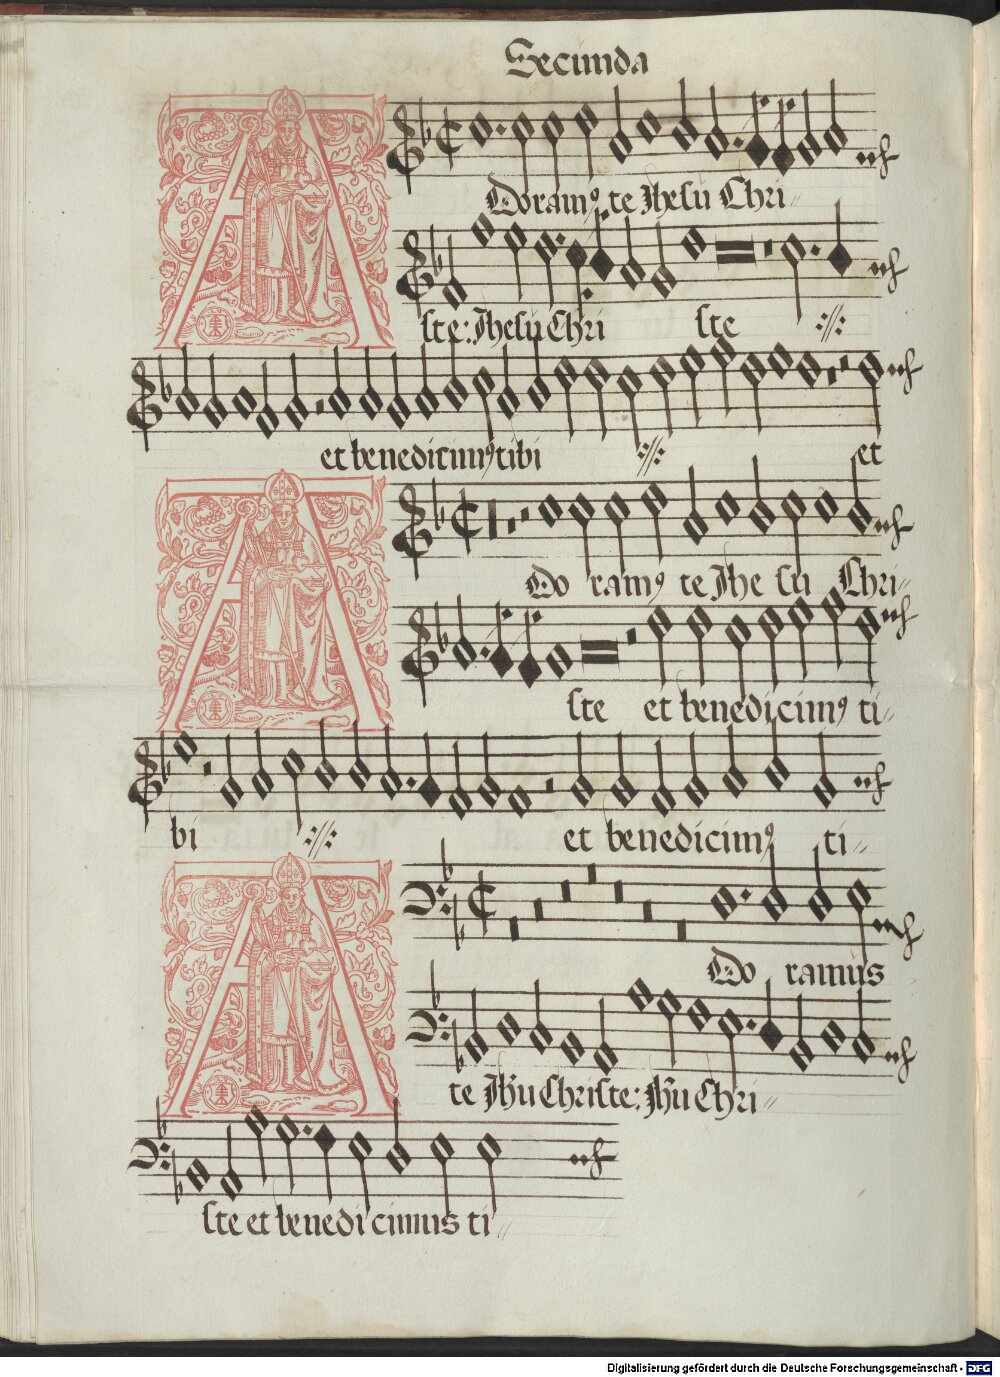 Secunda
Adoramꝰ te Jhesu Chri
ste: Jhesu Chri ste
et benedicimꝰ tibi et
Ado ramꝰ te Jhe su Chri
ste et benedicimꝰ ti
bi et benedicimꝰ ti
Ado ramus
te Jhu Christe: Jhu Chri
ste et benedicimus ti
Digitalisierung gefördert durch die Deutsche Forschungsgemeinschaft - DFG